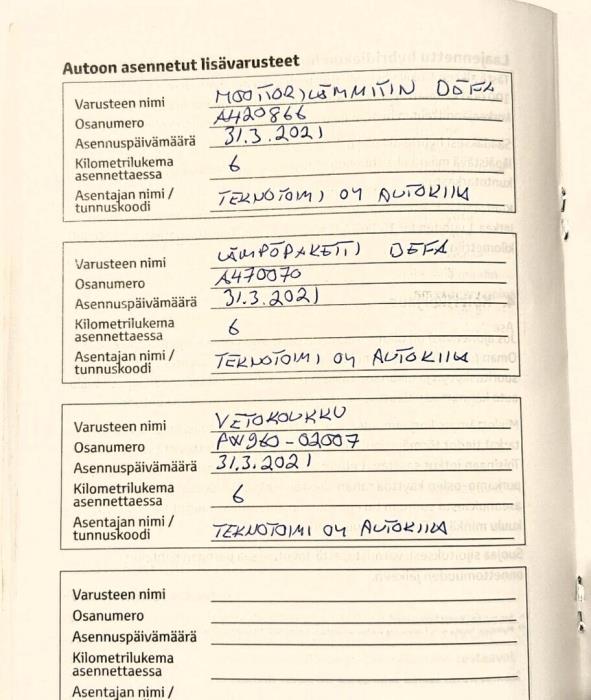 Autoon asennetut lisävarusteet
Varusteen nimi MOOTTORILÄMMITIN DEFA
Osanumero A420866
Asennuspäivämäärä 31.3.2021
Kilometrilukema
asennettaessa 6
Asentajan nimi /
tunnuskoodi TEKNOTOIMI OY AUTOKIILA
Varusteen nimi LÄMPÖPAKETTI DEFA
Osanumero A470070
Asennuspäivämäärä 31.3.2021
Kilometrilukema
asennettaessa 6
Asentajan nimi /
tunnuskoodi TEKNOTOIMI OY AUTOKIILA
Varusteen nimi VETOKOUKKU
Osanumero PW960-02007
Asennuspäivämäärä 31.3.2021
Kilometrilukema
asennettaessa 6
Asentajan nimi /
tunnuskoodi TEKNOTOIMI OY AUTOKIILA
Varusteen nimi
Osanumero
Asennuspäivämäärä
Kilometrilukema
asennettaessa
Asentajan nimi /